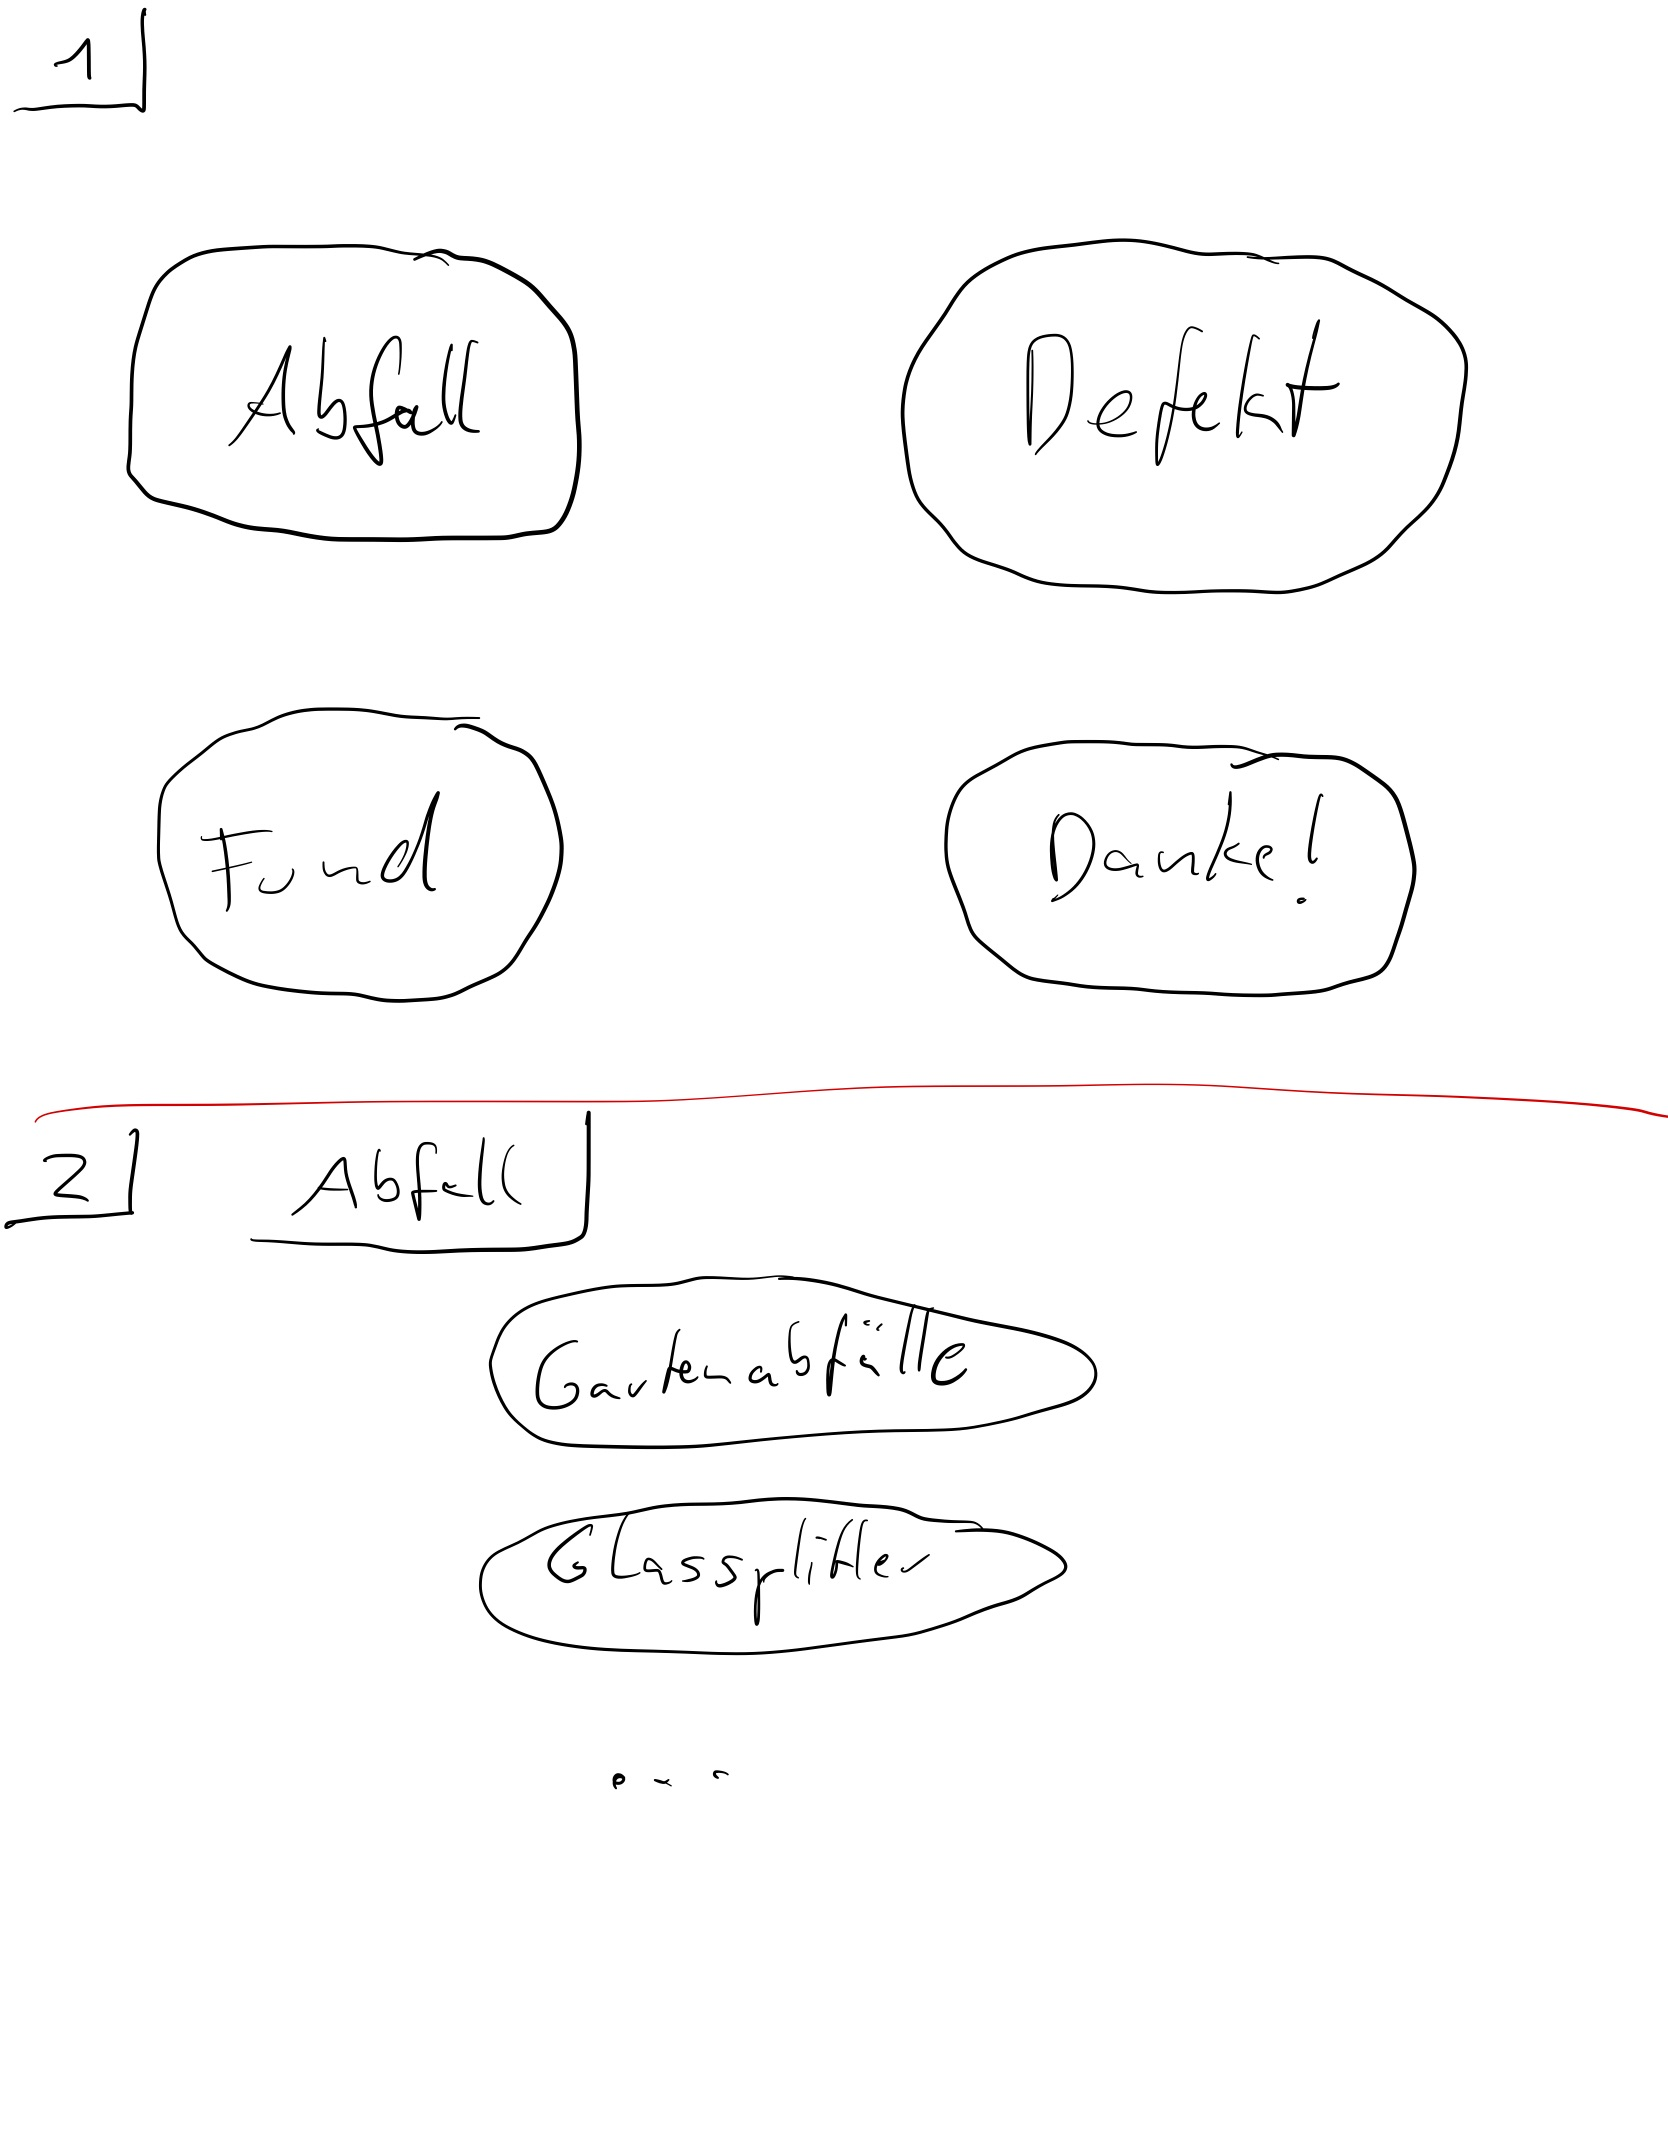 1
Abfall
Defekt
Fund
Danke!
2
Abfall
Gartenabfälle
Glassplitter
...